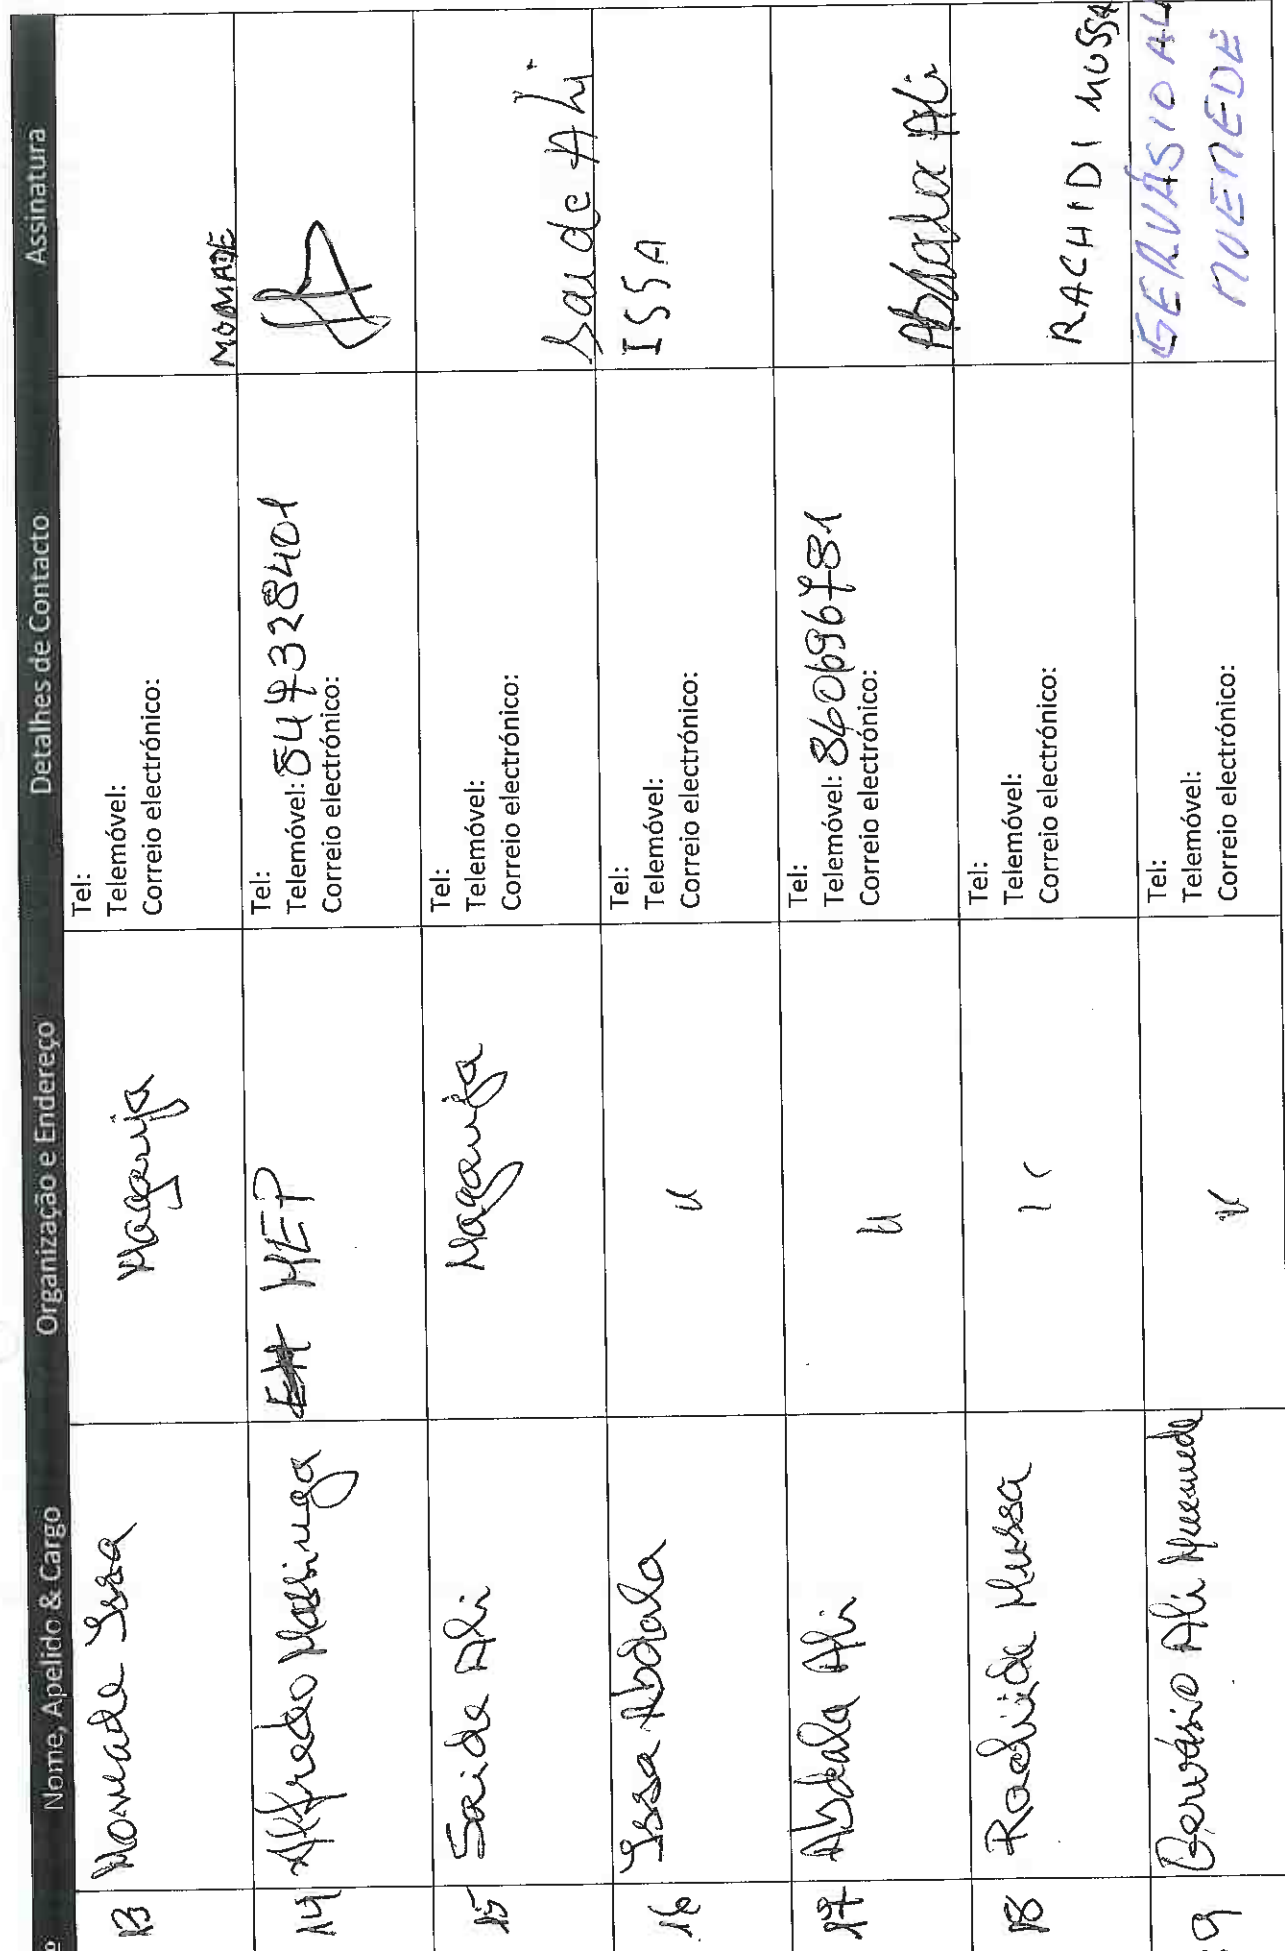 º Nome, Apelido & Cargo Organização e Endereço Detalhes de Contacto Assinatura
13 Momade Issa Maganja Tel:
Telemóvel:
Correio electrónico:
MOMADE
14 Alfredo Massinga MEP Tel:
Telemóvel: 847328401
Correio electrónico:
15 Saide Ali Maganja Tel:
Telemóvel:
Correio electrónico:
Saude Ali
16 Issa Abdala " Tel:
Telemóvel:
Correio electrónico:
ISSA
17 Abdala Ali " Tel:
Telemóvel: 860696781
Correio electrónico:
Abdala Ali
18 Rachide Mussa " Tel:
Telemóvel:
Correio electrónico:
RACHIDI MUSSA
19 Gervásio Ali Muemede " Tel:
Telemóvel:
Correio electrónico:
GERVÁSIO AL
MUEMEDE